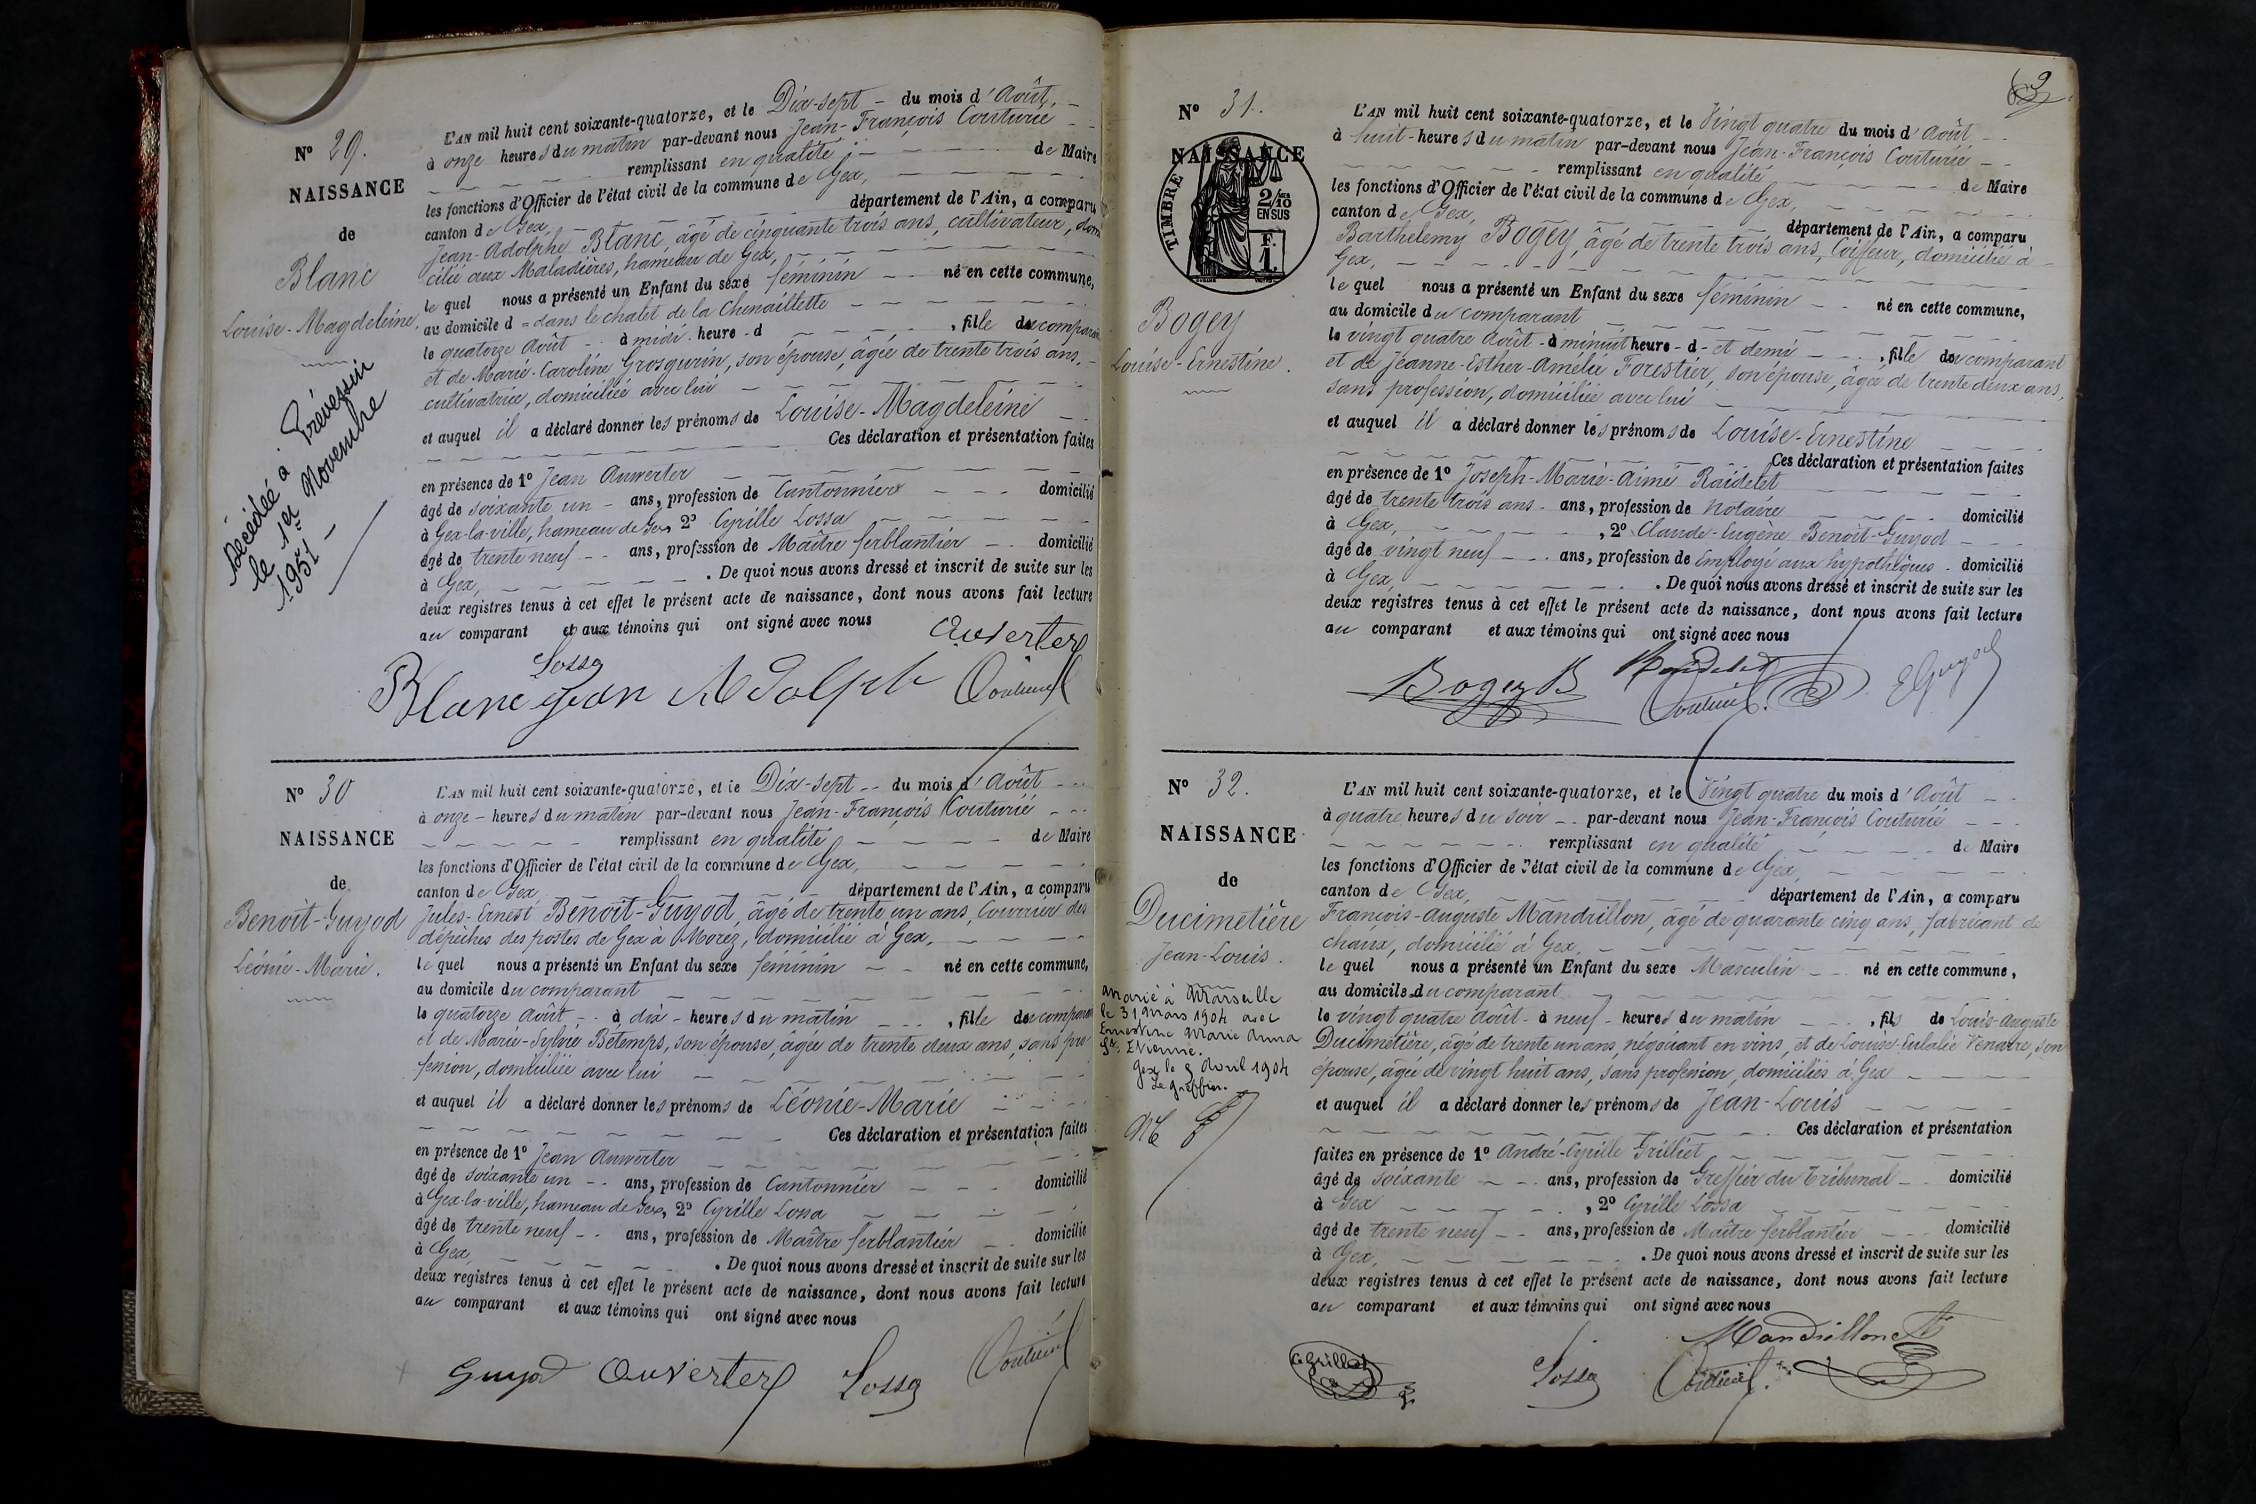 Nº 29.
NAISSANCE
de
Blanc
Louise-Magdeleine
Décédée à Prévessin
le 1er Novembre
1951
L'AN mil huit cent soixante-quatorze, et le Dix-sept du mois d'Août,
à onze heures du matin par-devant nous Jean-François Couturié
remplissant en qualité de Maire
les fonctions d'Officier de l'état civil de la commune de Gex,
canton de Gex, département de l'Ain, a comparu
Jean-Adolphe Blanc, âgé de cinquante trois ans, cultivateur, domi
cilié aux Maladières, hameau de Gex,
le quel nous a présenté un Enfant du sexe féminin né en cette commune,
au domicile d dans le chalet de la Chenaillette
le quatorze Août à midi heure d , fille du comparant
et de Marie-Caroline Grosgurin, son épouse, âgée de trente trois ans,
cultivatrice, domiciliée avec lui
et auquel il a déclaré donner les prénoms de Louise-Magdeleine
Ces déclaration et présentation faites
en présence de 1º Jean Auwerter
âgé de soixante un ans, profession de Cantonnier domicilié
à Gex-la-ville, hameau de Gex, 2º Cyrille Lossa
âgé de trente neuf ans, profession de Maître ferblantier domicilié
à Gex, . De quoi nous avons dressé et inscrit de suite sur les
deux registres tenus à cet effet le présent acte de naissance, dont nous avons fait lecture
au comparant et aux témoins qui ont signé avec nous
Auverter
Lossa
Blanc Jean Adolphe Couturié
Nº 30
NAISSANCE
de
Benoit-Guyod
Léonie-Marie.
L'AN mil huit cent soixante-quatorze, et le Dix-sept du mois d'Août
à onze heures du matin par-devant nous Jean-François Couturié
remplissant en qualité de Maire
les fonctions d'Officier de l'état civil de la commune de Gex,
canton de Gex département de l'Ain, a comparu
Jules-Ernest Benoit-Guyod, âgé de trente un ans, Courrier des
dépêches des postes de Gex à Morez, domicilié à Gex,
le quel nous a présenté un Enfant du sexe féminin né en cette commune,
au domicile du comparant
le quatorze Août à dix heures du matin , fille du comparant
et de Marie-Sylvie Bétemps, son épouse, âgée de trente deux ans, sans pro
fession, domiciliée avec lui
et auquel il a déclaré donner les prénoms de Léonie-Marie
Ces déclaration et présentation faites
en présence de 1º Jean Auwerter
âgé de soixante un ans, profession de Cantonnier domicilié
à Gex-la-ville, hameau de Gex, 2º Cyrille Lossa
âgé de trente neuf ans, profession de Maître ferblantier domicilié
à Gex, . De quoi nous avons dressé et inscrit de suite sur les
deux registres tenus à cet effet le présent acte de naissance, dont nous avons fait lecture
au comparant et aux témoins qui ont signé avec nous
Guyod Auverter Lossa Couturié
9
Nº 31.
NAISSANCE
TIMBRE
2/10
EN SUS
F.
1.
Bogey
Louise-Ernestine.
L'AN mil huit cent soixante-quatorze, et le Vingt quatre du mois d'Août
à huit heures du matin par-devant nous Jean-François Couturié
remplissant en qualité de Maire
les fonctions d'Officier de l'état civil de la commune de Gex,
canton de Gex, département de l'Ain, a comparu
Barthélemy Bogey, âgé de trente trois ans, Coiffeur, domicilié à
Gex,
le quel nous a présenté un Enfant du sexe féminin né en cette commune,
au domicile du comparant
le vingt quatre Août à minuit heure d et demi , fille du comparant
et de Jeanne-Esther-Amélie Forestier, son épouse, âgée de trente deux ans,
sans profession, domiciliée avec lui
et auquel il a déclaré donner les prénoms de Louise-Ernestine
Ces déclaration et présentation faites
en présence de 1º Joseph-Marie-Aimé Raidelet
âgé de trente trois ans ans, profession de Notaire domicilié
à Gex, , 2º Claude-Eugène Benoit-Guyod
âgé de vingt neuf ans, profession de Employé aux hypothèques domicilié
à Gex, . De quoi nous avons dressé et inscrit de suite sur les
deux registres tenus à cet effet le présent acte de naissance, dont nous avons fait lecture
au comparant et aux témoins qui ont signé avec nous
Bogey B Raidelet Couturié E Guyod
Nº 32.
NAISSANCE
de
Ducimetière
Jean-Louis.
Marié à Marseille
le 31 mars 1904 avec
Ernestine Marie Anna
St. Etienne.
Gex le 5 Avril 1904
Le Greffier.
L'AN mil huit cent soixante-quatorze, et le Vingt quatre du mois d'Août
à quatre heures du soir par-devant nous Jean-François Couturié
remplissant en qualité de Maire
les fonctions d'Officier de l'état civil de la commune de Gex,
canton de Gex, département de l'Ain, a comparu
François-Auguste Mandrillon, âgé de quarante cinq ans, fabricant de
chaux, domicilié à Gex,
le quel nous a présenté un Enfant du sexe Masculin né en cette commune,
au domicile du comparant
le vingt quatre Août à neuf heures du matin , fils de Louis-Auguste
Ducimetière, âgé de trente un ans, négociant en vins, et de Louise-Eulalie Venarre, son
épouse, âgée de vingt huit ans, sans profession, domiciliés à Gex
et auquel il a déclaré donner les prénoms de Jean-Louis
Ces déclaration et présentation
faites en présence de 1º André-Cyrille Grilliet
âgé de soixante ans, profession de Greffier du Tribunal domicilié
à Gex , 2º Cyrille Lossa
âgé de trente neuf ans, profession de Maître ferblantier domicilié
à Gex, . De quoi nous avons dressé et inscrit de suite sur les
deux registres tenus à cet effet le présent acte de naissance, dont nous avons fait lecture
au comparant et aux témoins qui ont signé avec nous
Mandrillon
Lossa Couturié